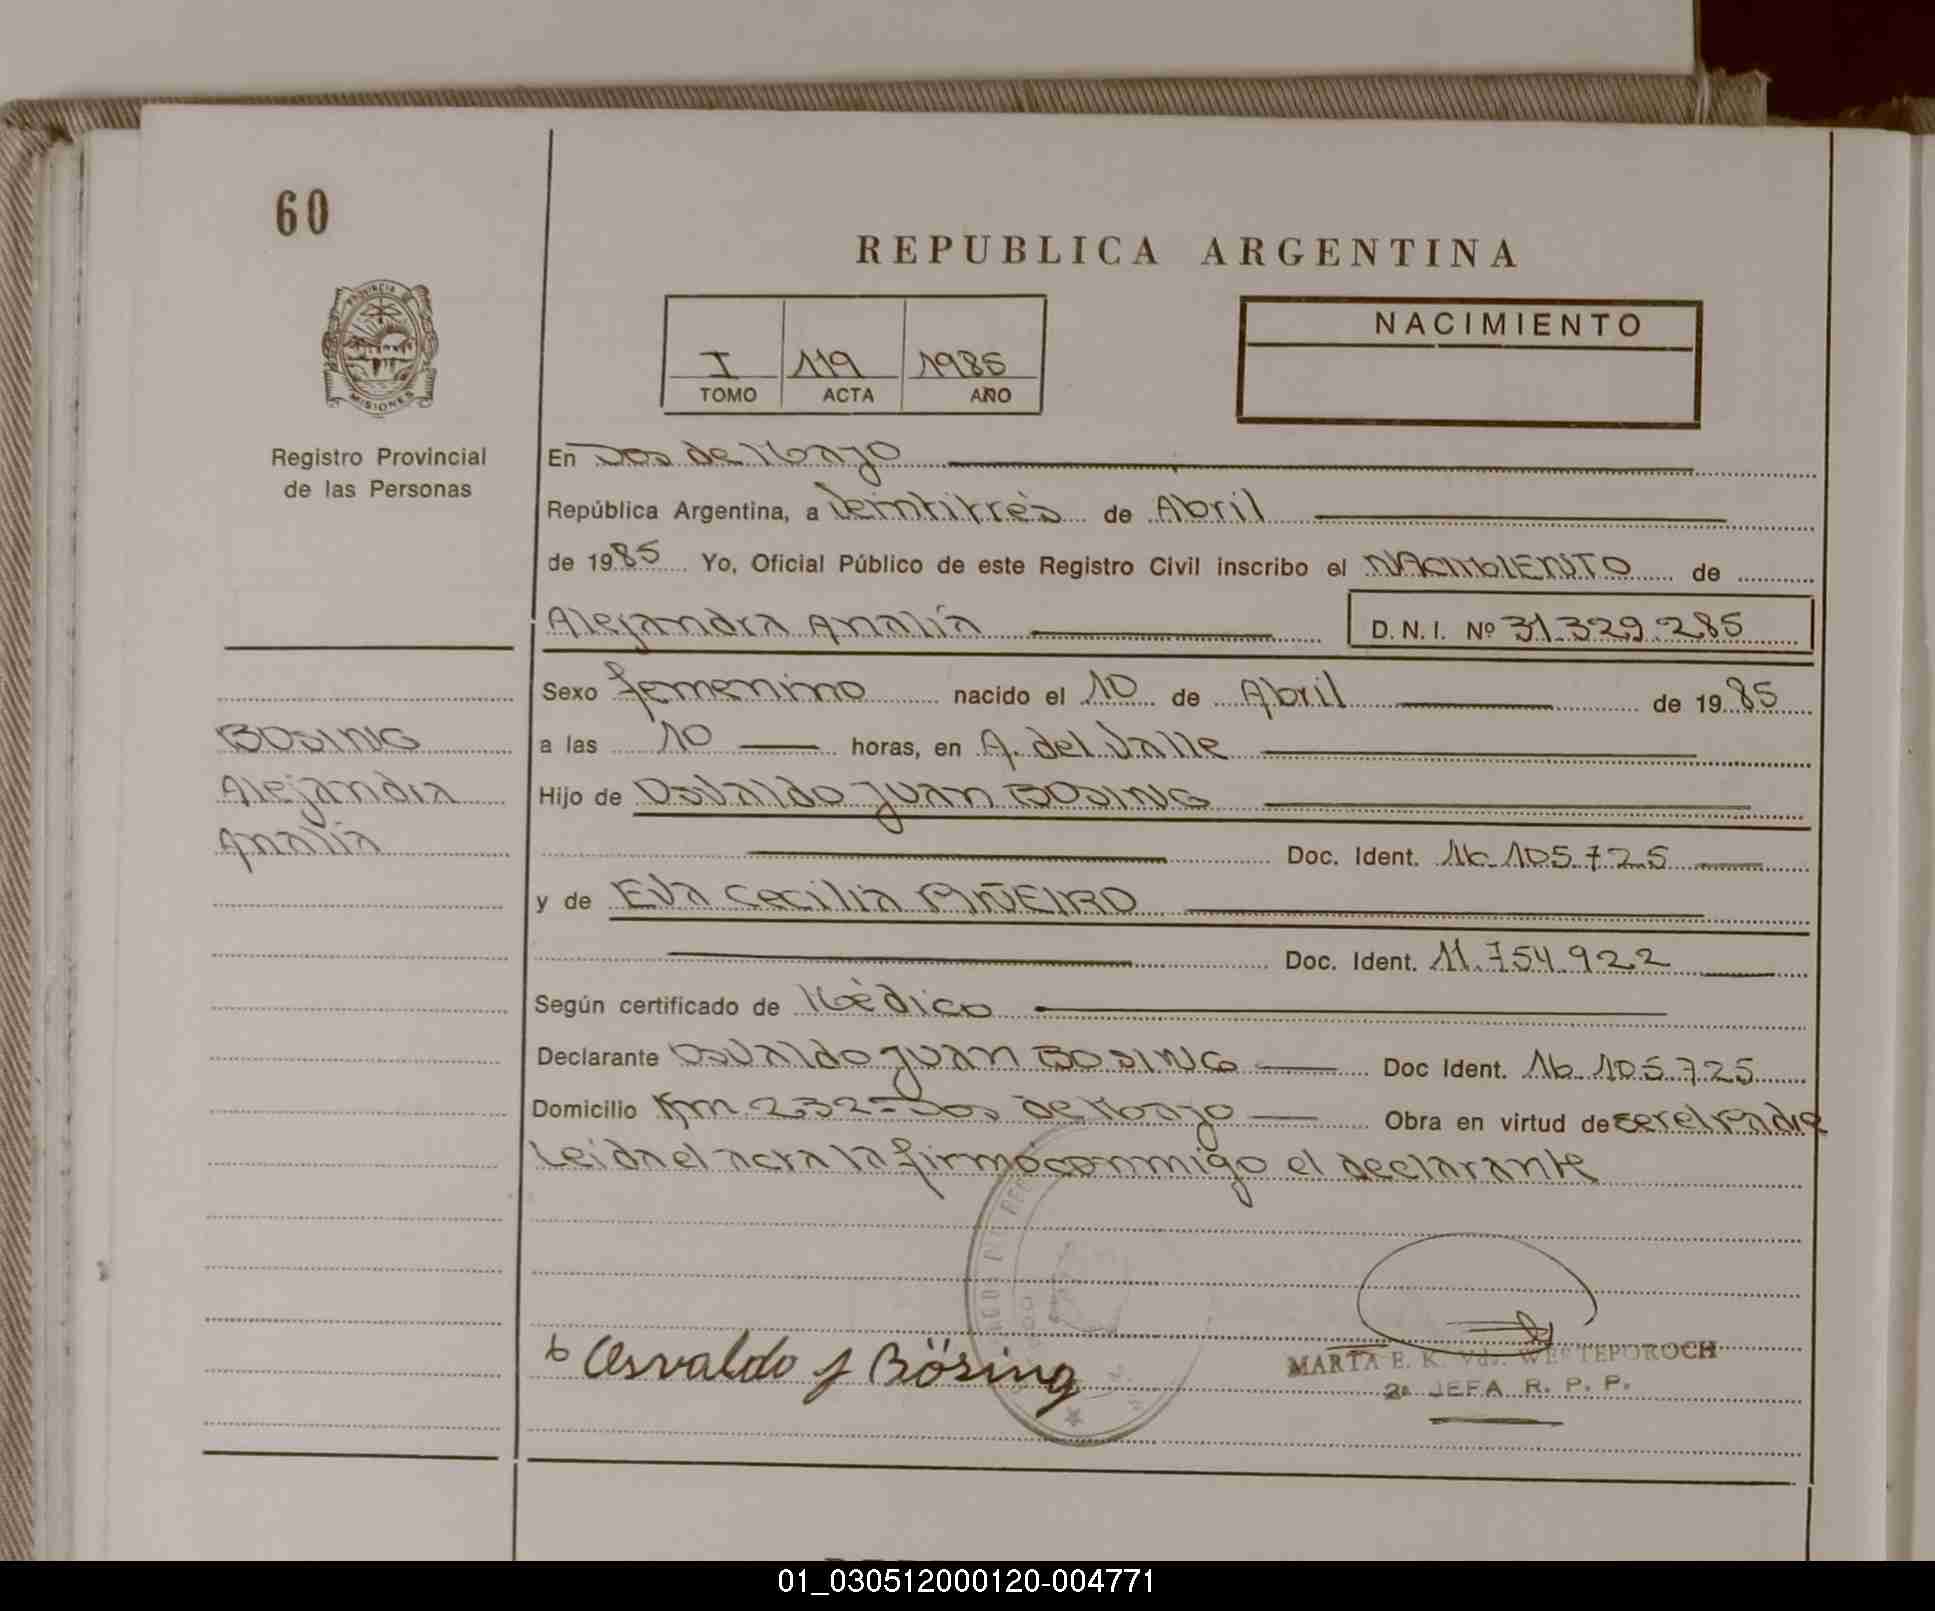 60
REPUBLICA ARGENTINA
PROVINCIA
MISIONES
Registro Provincial
de las Personas
I 119 1985
TOMO ACTA AÑO
NACIMIENTO
En Dos de Mayo
República Argentina, a Veintitrés de Abril
de 1985 Yo, Oficial Público de este Registro Civil inscribo el NACIMIENTO de
Alejandra Analía D.N.I. Nº 31.329.285
Sexo femenino nacido el 10 de Abril de 1985
BOSING
Alejandra
Analía
a las 10 horas, en A. del Valle
Hijo de Osvaldo Juan BOSING
Doc. Ident. 16.105.725
y de Eva Cecilia PIÑEIRO
Doc. Ident. 11.754.922
Según certificado de Médico
Declarante Osvaldo Juan BOSING Doc Ident. 16.105.725
Domicilio Km 232 - Dos de Mayo Obra en virtud de ser el Padre
Leida el acta la firma conmigo el declarante
Osvaldo J Bösing
MARTA E. K. Vda. WESTEPOROCH
2a JEFA R. P. P.
01_030512000120-004771